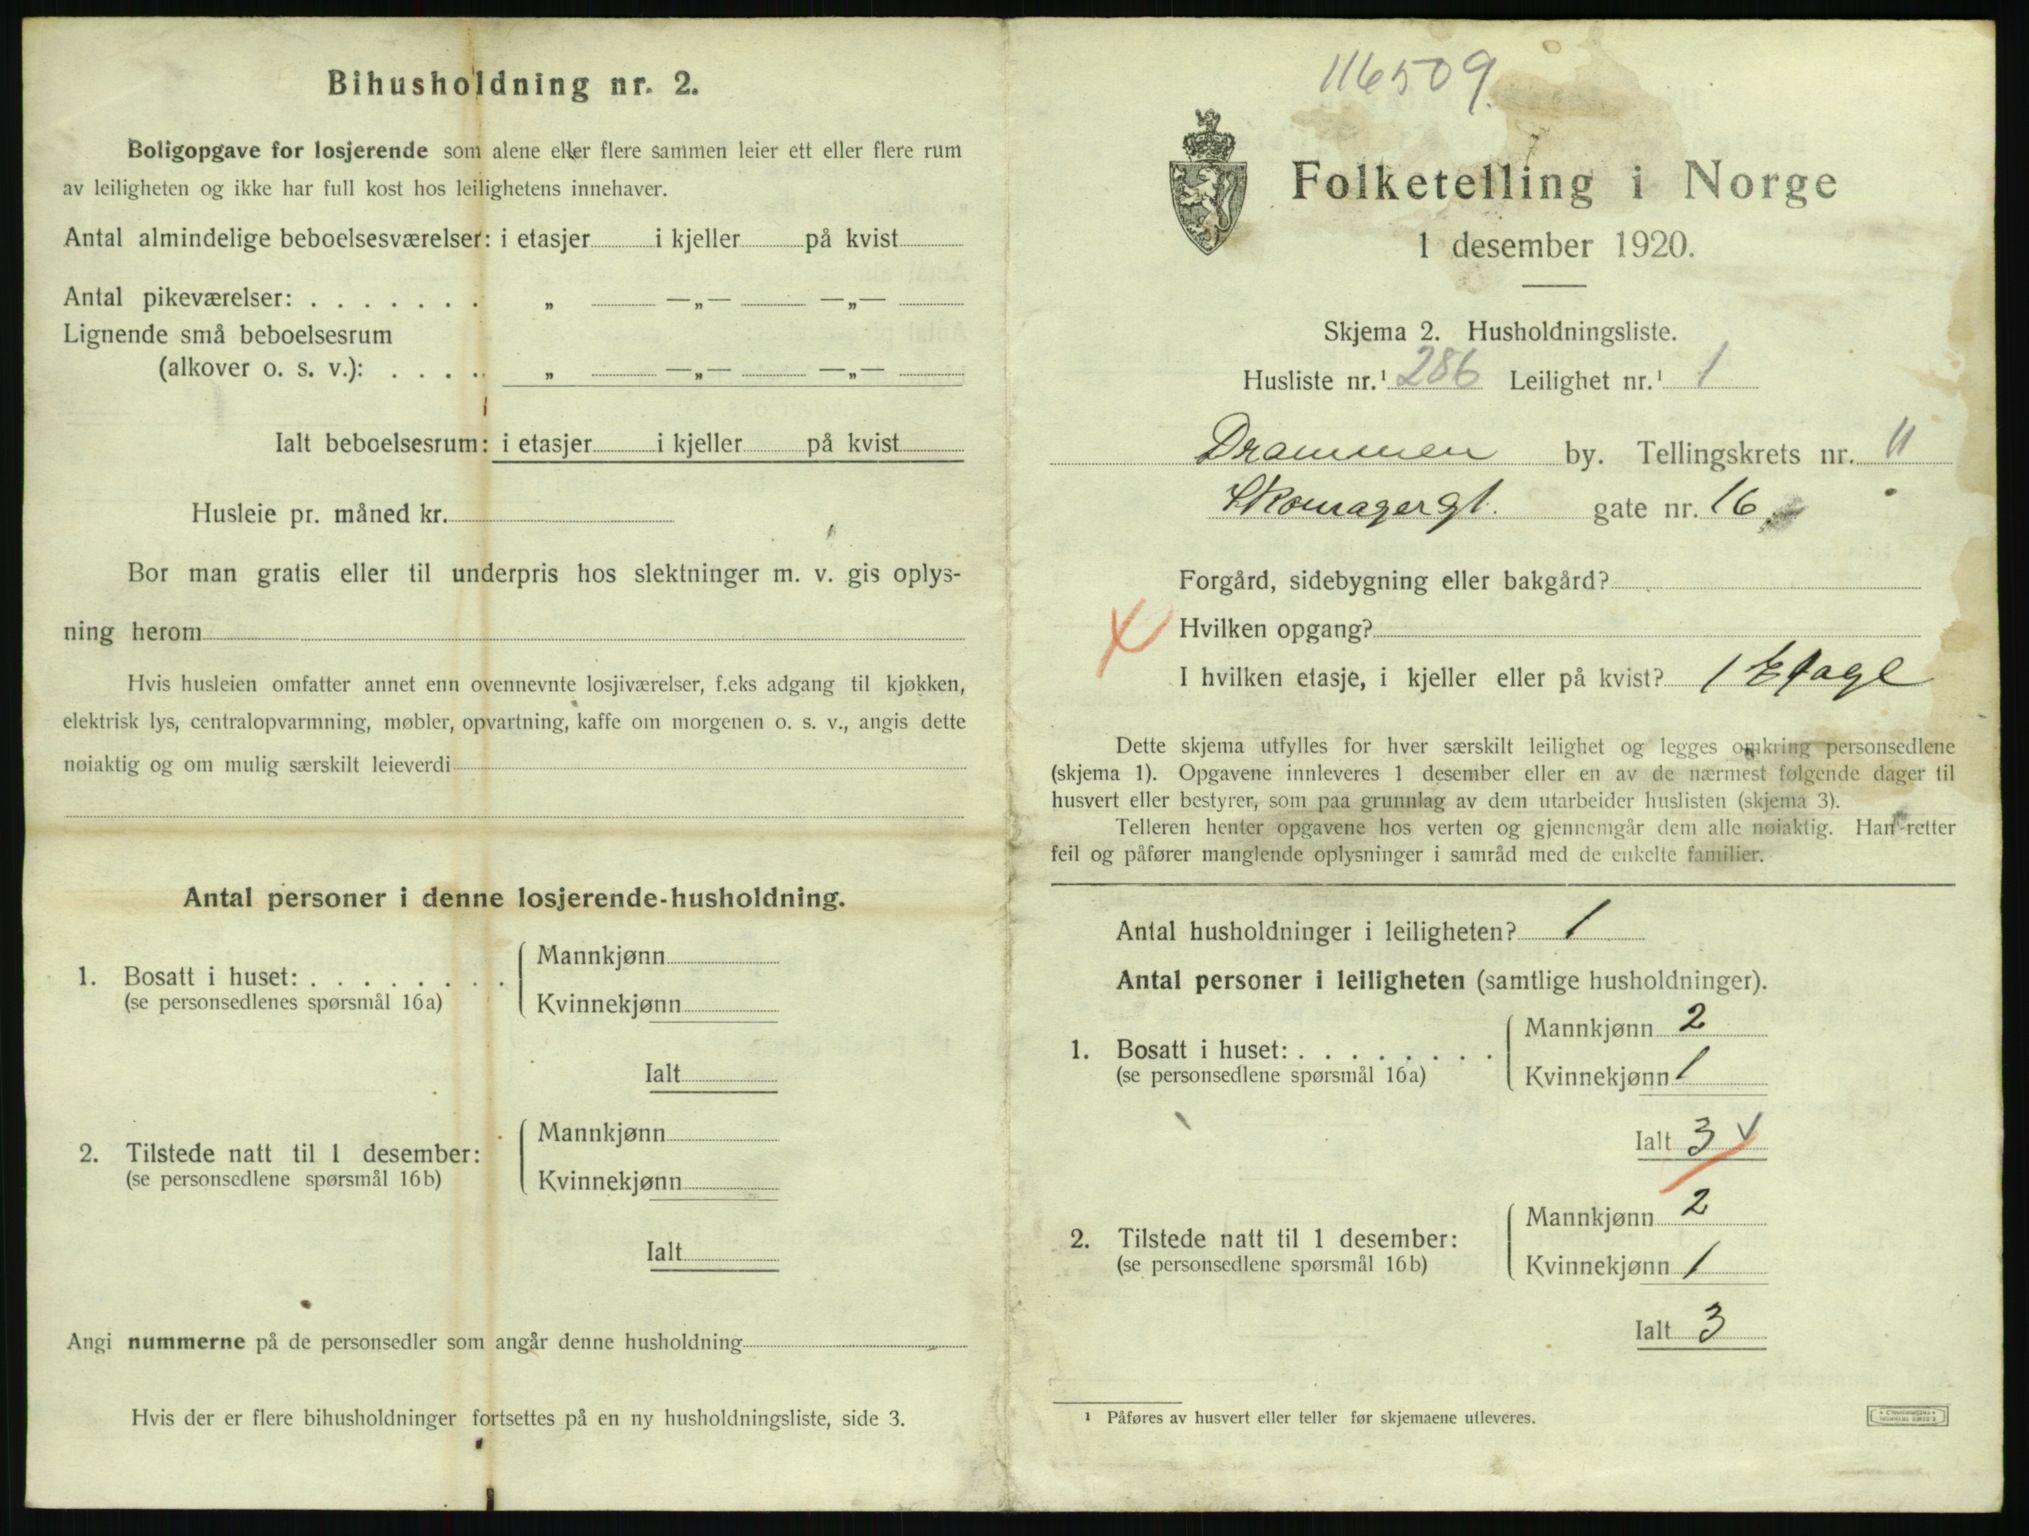 Bihusholdning nr. 2.
Boligopgave for losjerende som alene eller flere sammen leier ett eller flere rum
av leiligheten og ikke har full kost hos leilighetens innehaver.
Antal almindelige beboelsesværelser: i etasjer i kjeller på kvist
Antal pikeværelser: . . . . . . . „ —„— —„—
Lignende små beboelsesrum
(alkover o. s. v.): . . . . „ —„— —„—
Ialt beboelsesrum: i etasjer i kjeller på kvist
Husleie pr. måned kr.
Bor man gratis eller til underpris hos slektninger m. v. gis oplys-
ning herom
Hvis husleien omfatter annet enn ovennevnte losjiværelser, f.eks adgang til kjøkken,
elektrisk lys, centralopvarmning, møbler, opvartning, kaffe om morgenen o. s. v., angis dette
nøiaktig og om mulig særskilt leieverdi
Antal personer i denne losjerende-husholdning.
1. Bosatt i huset: . . . . . . . .
(se personsedlenes spørsmål 16a)
Mannkjønn
Kvinnekjønn
Ialt
2. Tilstede natt til 1 desember:
(se personsedlene spørsmål 16b)
Mannkjønn
Kvinnekjønn
Ialt
Angi nummerne på de personsedler som angår denne husholdning
Hvis der er flere bihusholdninger fortsettes på en ny husholdningsliste, side 3.
116509.
Folketelling i Norge
1 desember 1920.
Skjema 2. Husholdningsliste.
Husliste nr.¹ 286 Leilighet nr.¹ 1
Drammen by. Tellingskrets nr. 11
Skomagergt. gate nr. 16
Forgård, sidebygning eller bakgård?
Hvilken opgang?
I hvilken etasje, i kjeller eller på kvist? 1 Etage
Dette skjema utfylles for hver særskilt leilighet og legges omkring personsedlene
(skjema 1). Opgavene innleveres 1 desember eller en av de nærmest følgende dager til
husvert eller bestyrer, som paa grunnlag av dem utarbeider huslisten (skjema 3).
Telleren henter opgavene hos verten og gjennemgår dem alle nøiaktig. Han retter
feil og påfører manglende oplysninger i samråd med de enkelte familier.
Antal husholdninger i leiligheten? 1
Antal personer i leiligheten (samtlige husholdninger).
1. Bosatt i huset: . . . . . . . .
(se personsedlene spørsmål 16a)
Mannkjønn 2
Kvinnekjønn 1
Ialt 3
2. Tilstede natt til 1 desember:
(se personsedlene spørsmål 16b)
Mannkjønn 2
Kvinnekjønn 1
Ialt 3
¹ Påføres av husvert eller teller før skjemaene utleveres.